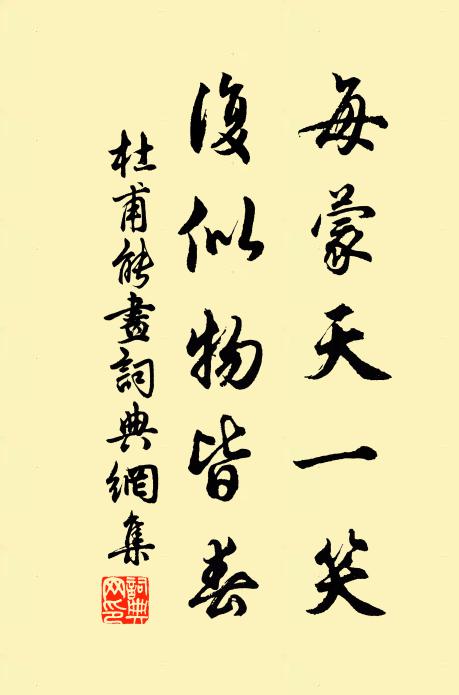 每蒙天一笑
復似物皆春
杜甫能畫詞典網集
詞典网印